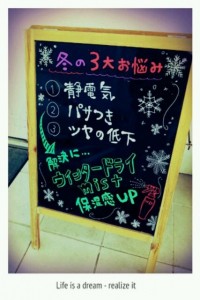 冬の3大お悩み
① 静電気
② パサつき
③ ツヤの低下
解決に…
ウィンタードライ
mist
保湿感UP
Life is a dream - realize it